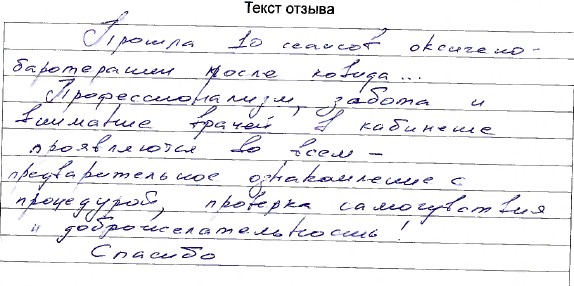 Текст отзыва
Прошла 10 сеансов оксигено-
баротерапии после ковида...
Профессионализм, забота и
внимание врачей в кабинете
проявляются во всем –
предварительное ознакомление с
процедурой, проверка самочувствия
и доброжелательность!
Спасибо